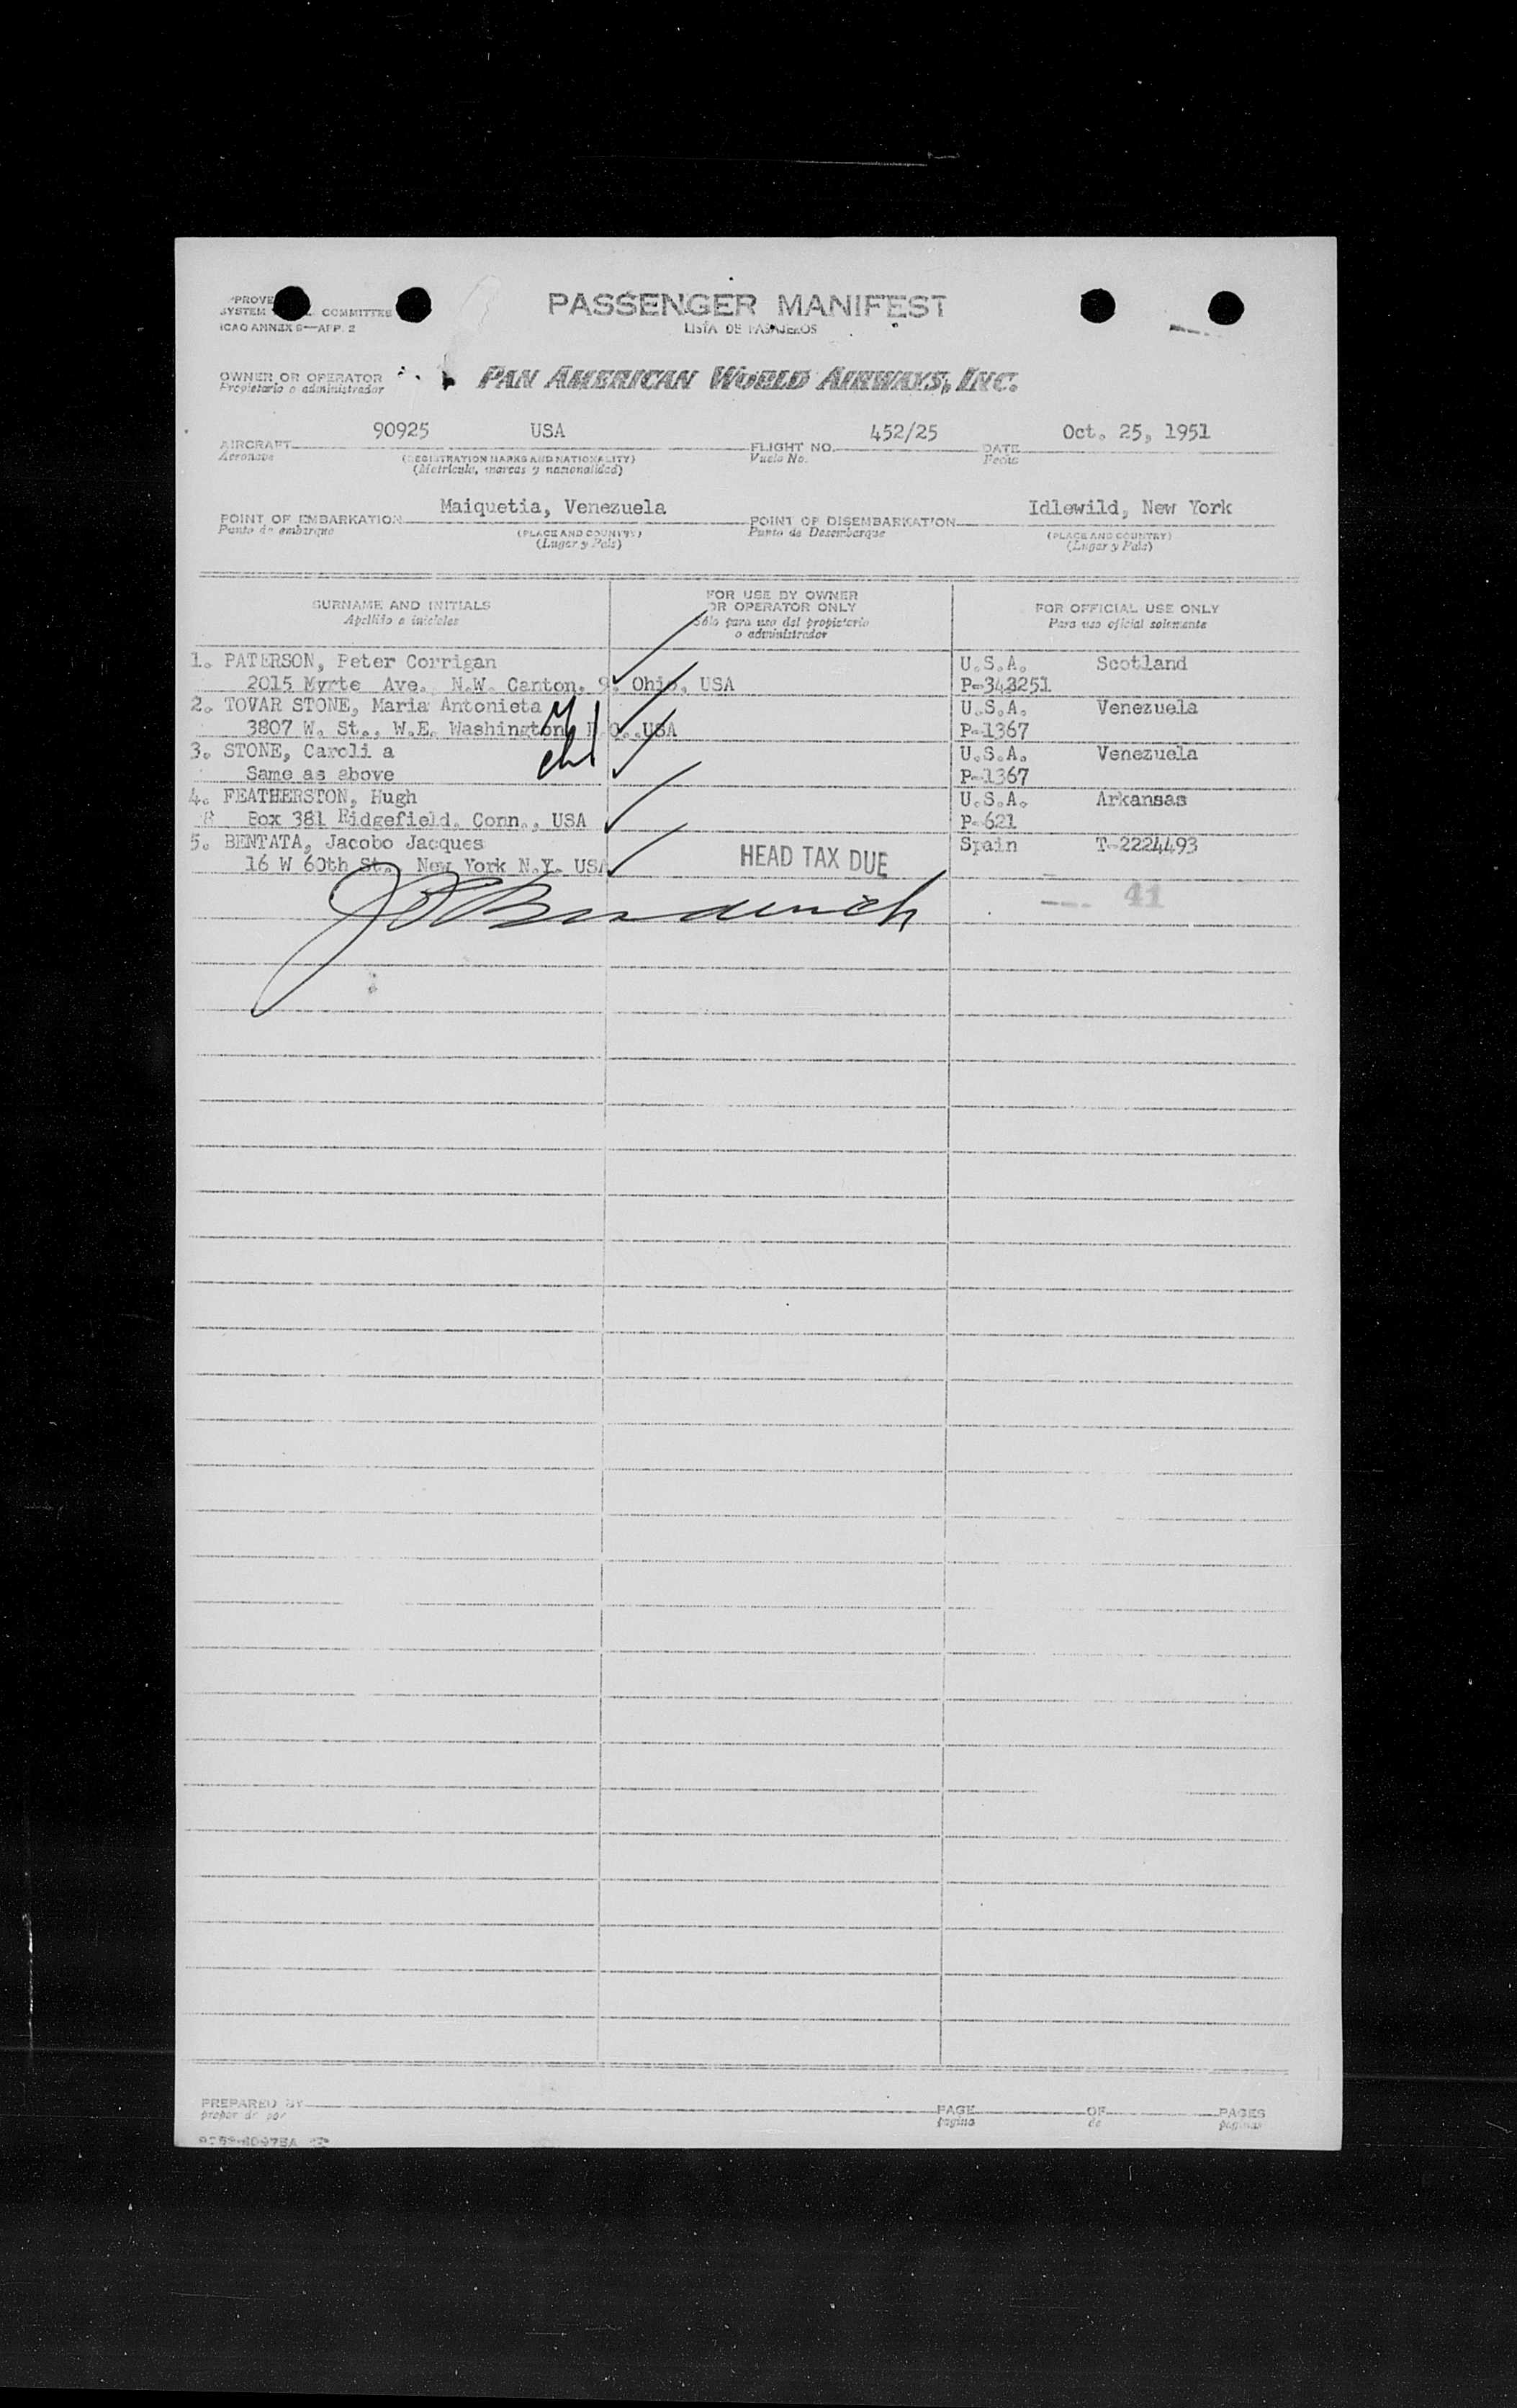 SYSTEM COMMITTEE
ICAO ANNEX 9—APP. 2
PASSENGER MANIFEST
LISTA DE PASAJEROS
OWNER OR OPERATOR
Propietario o administrador
PAN AMERICAN WORLD AIRWAYS, INC.
90925 USA 452/25 Oct. 25, 1951
AIRCRAFT FLIGHT NO. DATE
Aeronave (REGISTRATION MARKS AND NATIONALITY) Vuelo No. Fecha
(Matricula, marcas y nacionalidad)
Maiquetia, Venezuela Idlewild, New York
POINT OF EMBARKATION POINT OF DISEMBARKATION
Punto de embarque (PLACE AND COUNTRY) Punto de Desembarque (PLACE AND COUNTRY)
(Lugar y Pais) (Lugar y Pais)
SURNAME AND INITIALS
Apellido e iniciales
FOR USE BY OWNER
OR OPERATOR ONLY
Sólo para uso del propietario
o administrador
FOR OFFICIAL USE ONLY
Para uso oficial solamente
1. PATERSON, Peter Corrigan U.S.A. Scotland
2015 Myrte Ave. N.W. Canton, 9. Ohio, USA P-343251
2. TOVAR STONE, Maria Antonieta U.S.A. Venezuela
3807 W. St., W.E. Washington, D.C., USA P-1367
3. STONE, Caroli a U.S.A. Venezuela
Same as above P-1367
4. FEATHERSTON, Hugh U.S.A. Arkansas
Box 381 Ridgefield, Conn., USA P-621
5. BENTATA, Jacobo Jacques Spain T-2224493
16 W 60th St., New York N.Y. USA HEAD TAX DUE
41
PREPARED BY PAGE OF PAGES
pagina de paginas